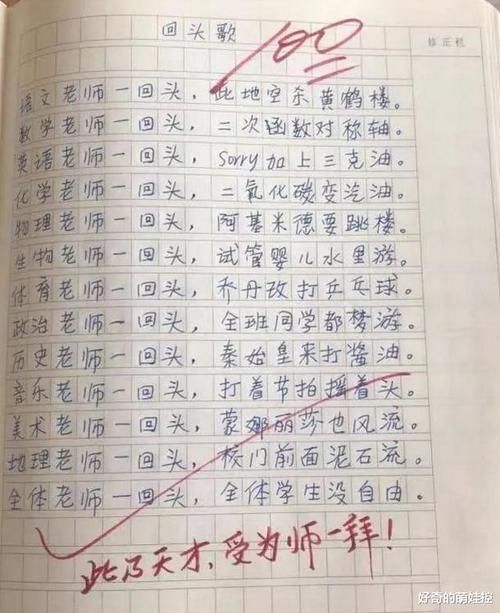 回头歌
100
修正栏
语文老师一回头，此地空余黄鹤楼。
数学老师一回头，二次函数对称轴。
英语老师一回头，sorry加上三克油。
化学老师一回头，二氧化碳变汽油。
物理老师一回头，阿基米德要跳楼。
生物老师一回头，试管婴儿水里游。
体育老师一回头，乔丹改打乒乓球。
政治老师一回头，全班同学都梦游。
历史老师一回头，秦始皇来打酱油。
音乐老师一回头，打着节拍摇着头。
美术老师一回头，蒙娜丽莎也风流。
地理老师一回头，校门前面泥石流。
全体老师一回头，全体学生没自由。
此乃天才，受为师一拜！
好奇的萌娃控